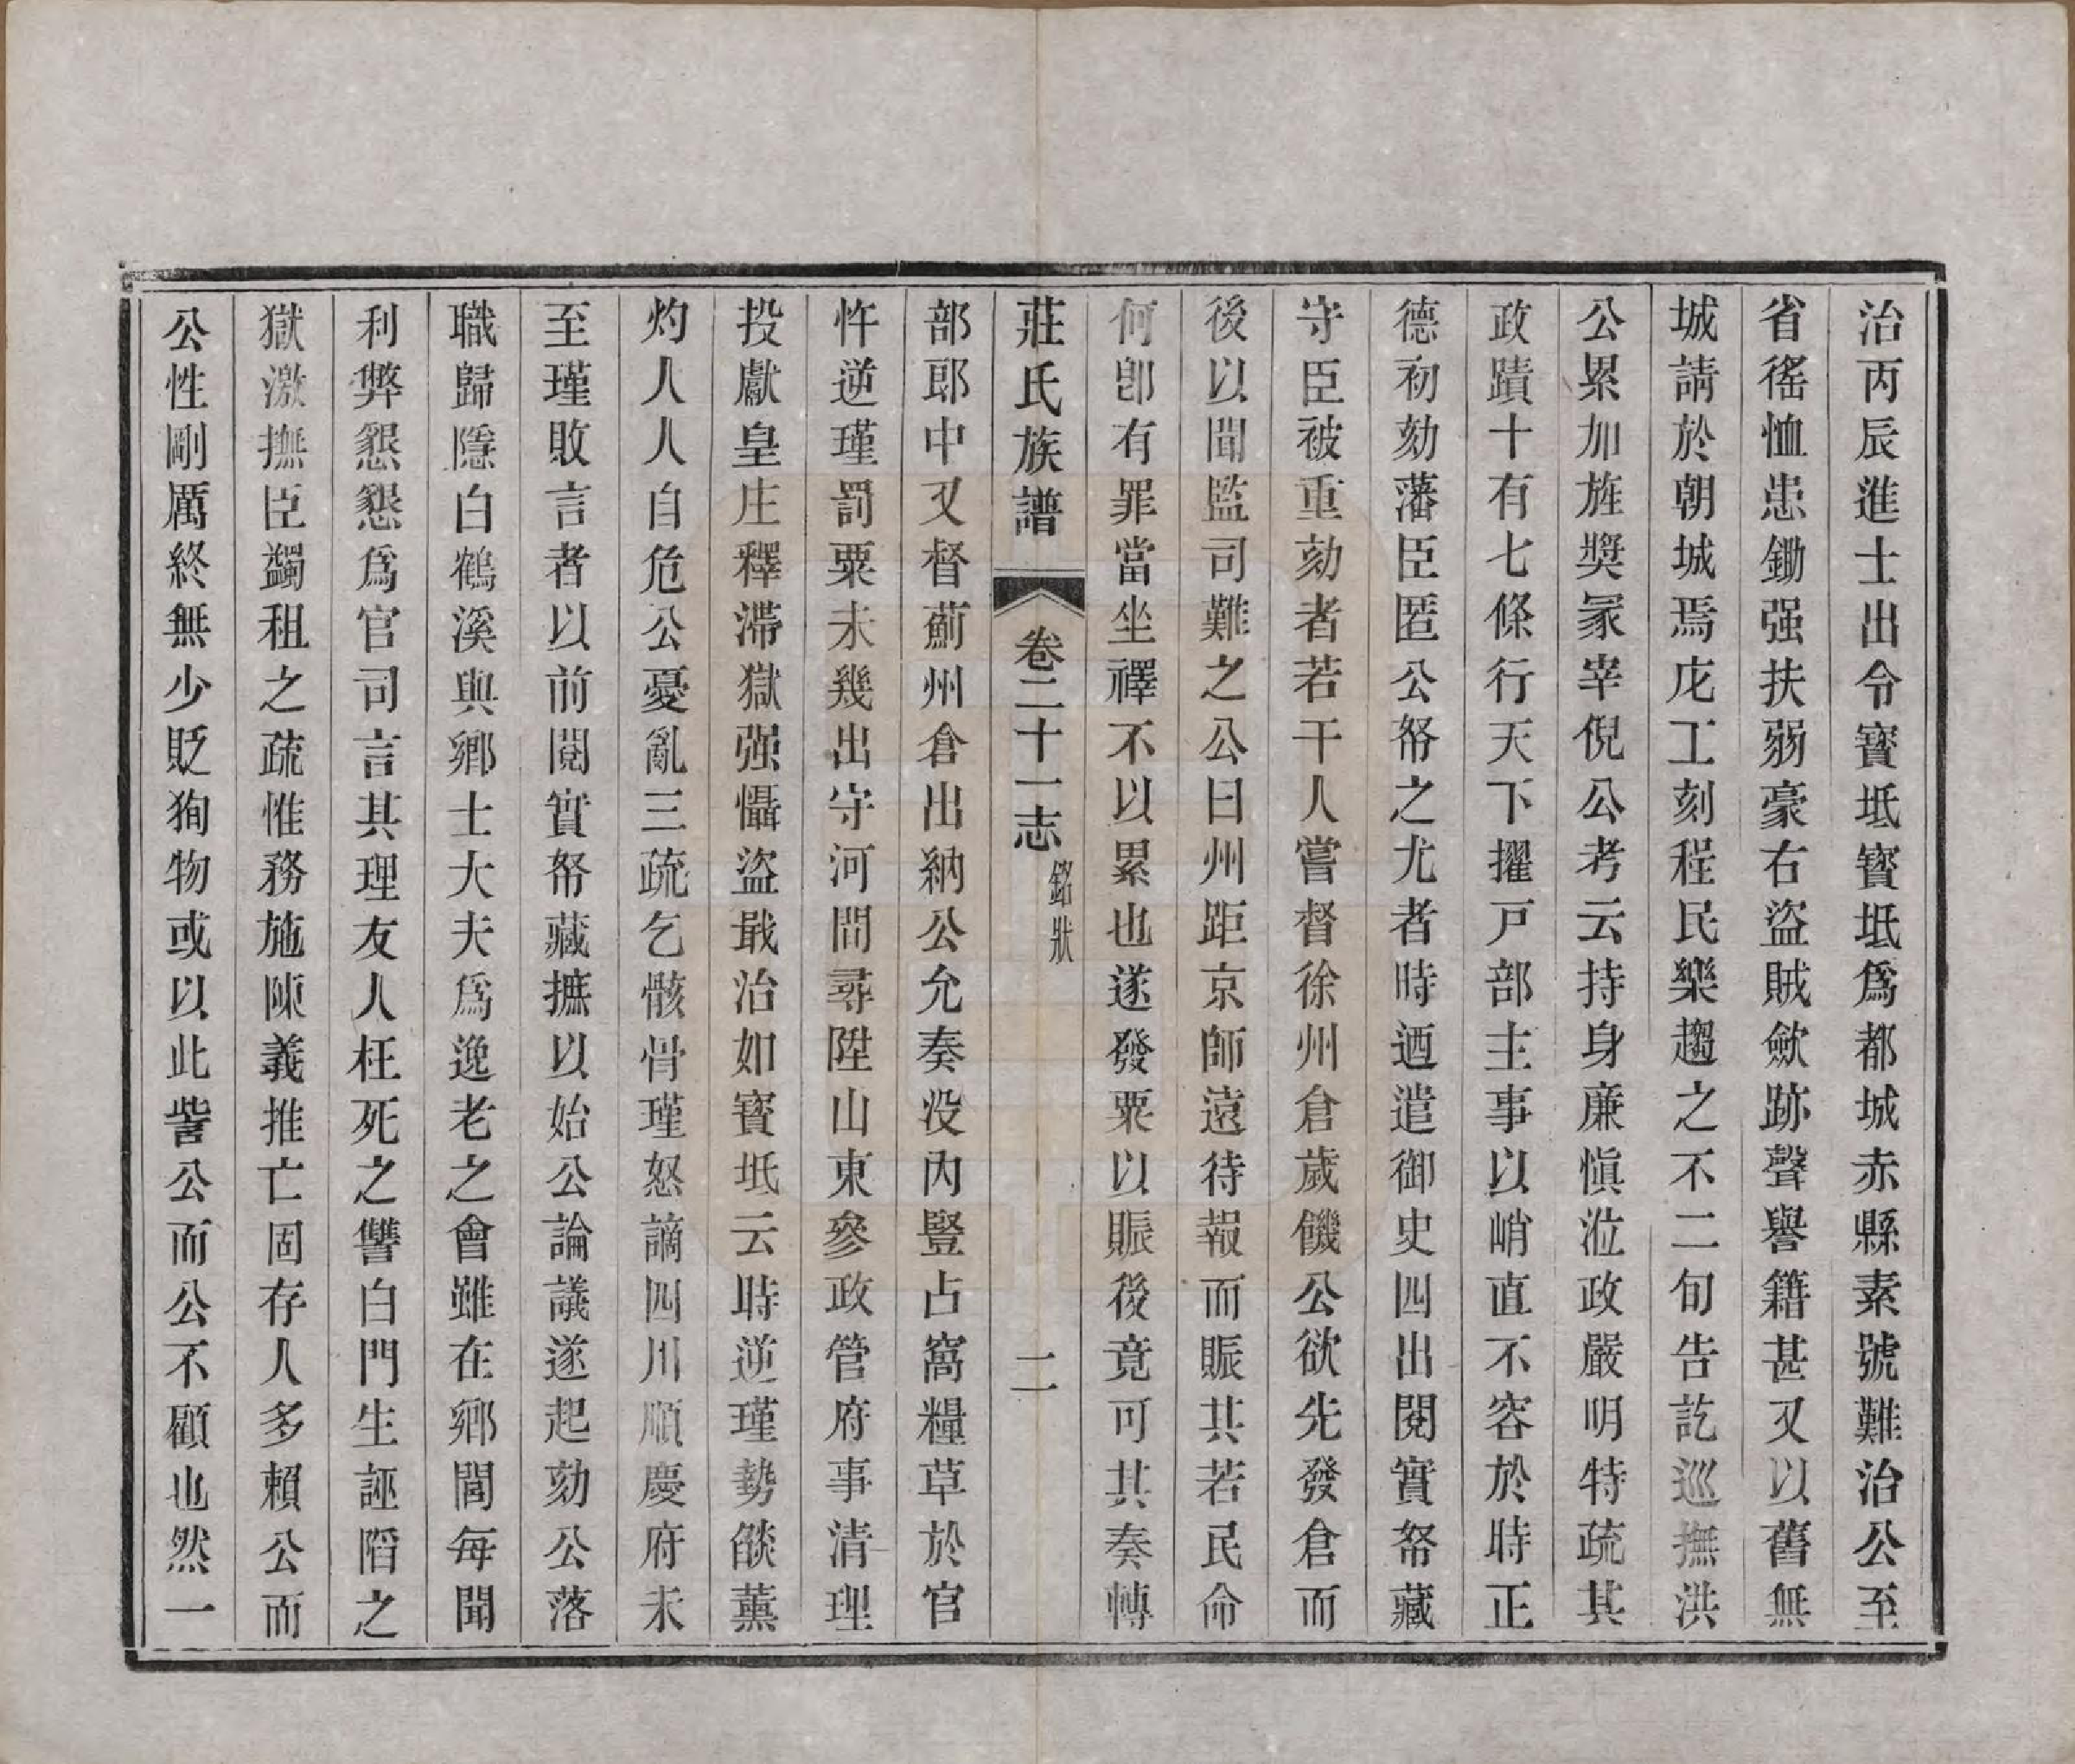 治丙辰進士出令寳坻寳坻爲都城赤縣素號難治公至
省徭恤患鋤强扶弱豪右盜賊歛跡聲譽籍甚又以舊無
城請於朝城焉庀工刻程民樂趨之不二旬告訖巡撫洪
公累加旌獎冢宰倪公考云持身廉愼涖政嚴明特疏其
政蹟十有七條行天下擢戸部主事以峭直不容於時正
德初劾藩臣匿公帑之尤者時迺遣御史四出閱實帑藏
守臣被重劾者若干人嘗督徐州倉歲饑公欲先發倉而
後以聞監司難之公曰州距京師遠待報而賑其若民命
何卽有罪當坐禪不以累也遂發粟以賑後竟可其奏轉
莊氏族譜 卷二十一志 銘狀 二
部郎中又督薊州倉出納公允奏没內豎占窩糧草於官
忤逆瑾罰粟未幾出守河間尋陞山東參政管府事清理
投獻皇庄釋滯獄强懾盜戢治如寳坻云時逆瑾勢燄薰
灼人人自危公憂亂三疏乞骸骨瑾怒謫四川順慶府未
至瑾敗言者以前閱實帑藏摭以始公論議遂起劾公落
職歸隱白鶴溪與鄉士大夫爲逸老之會雖在鄉閭每聞
利弊懇懇爲官司言其理友人枉死之讐白門生誣陷之
獄激撫臣蠲租之疏惟務施陳義推亡固存人多賴公而
公性剛厲終無少貶狥物或以此訾公而公不顧也然一